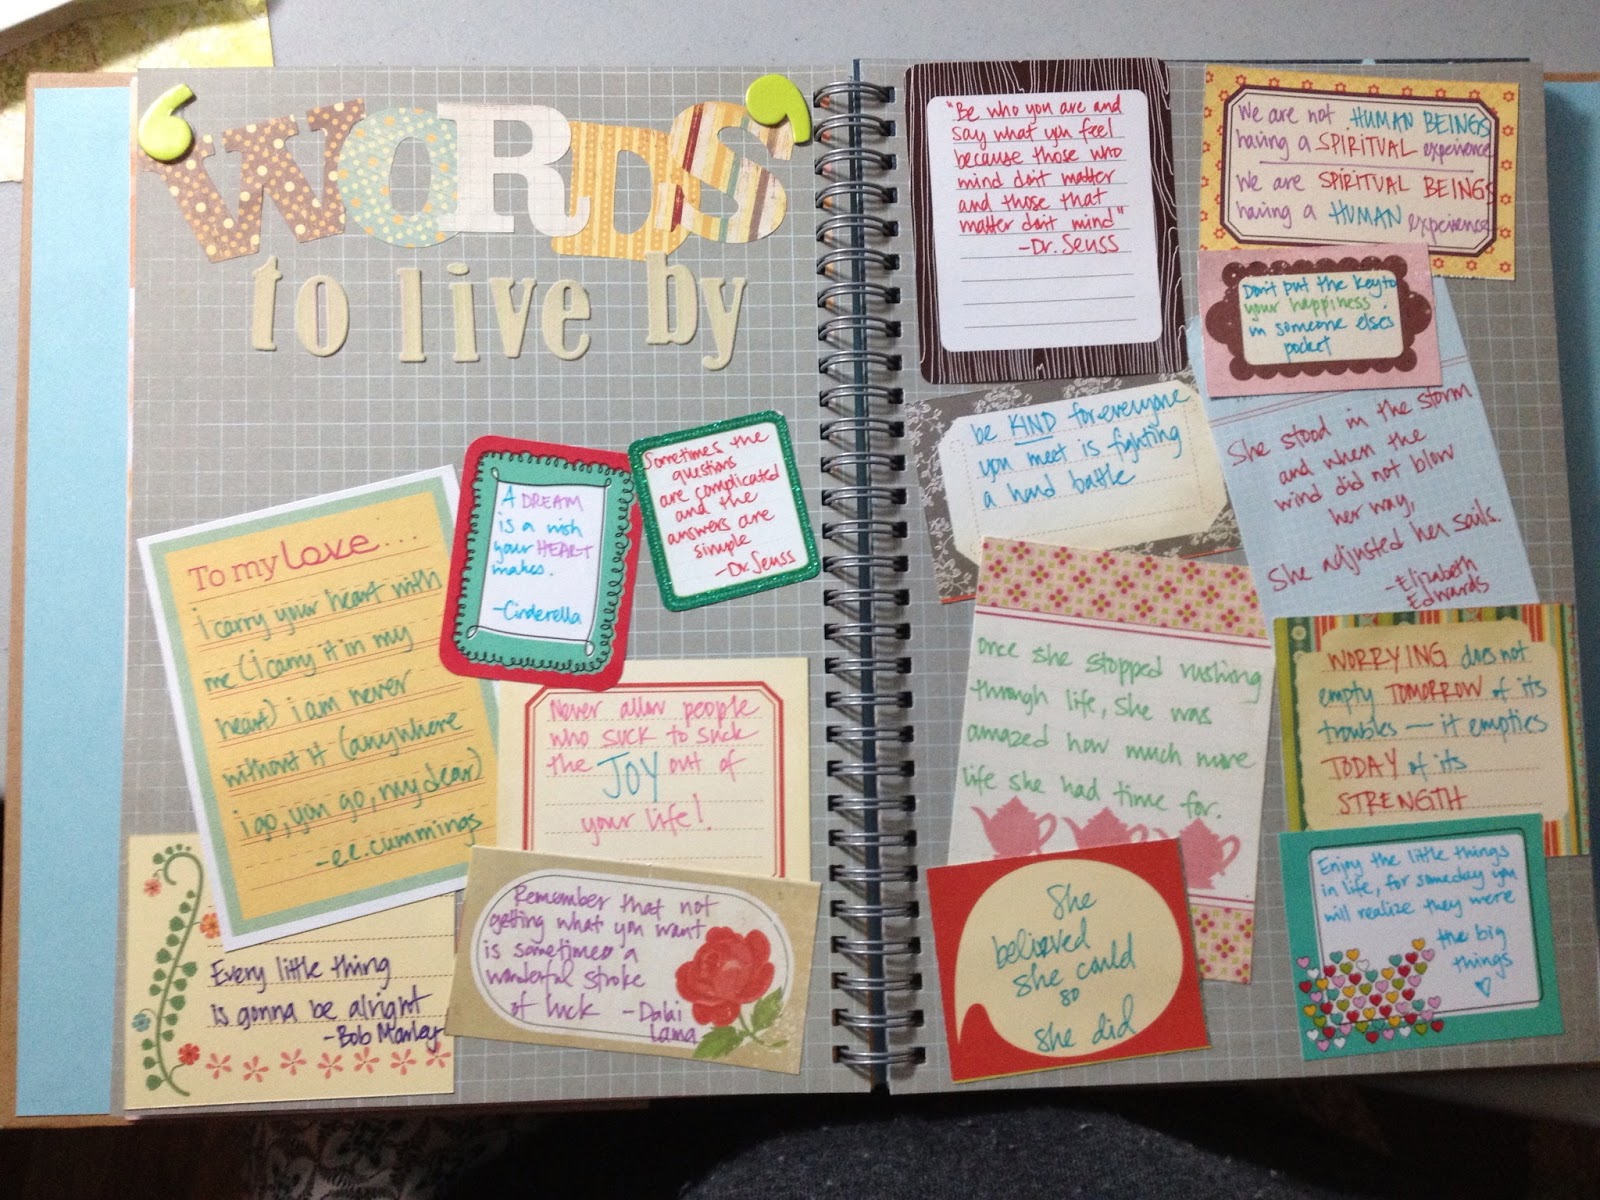 "WORDS"
to live by
To my love...
i carry your heart with
me (i carry it in my
heart) i am never
without it (anywhere
i go, you go, my dear)
-e.e. cummings
A DREAM
is a wish
your HEART
makes.
-Cinderella
Sometimes the
questions
are complicated
and the
answers are
simple
-Dr. Seuss
Never allow people
who suck to suck
the JOY out of
your life!
Every little thing
is gonna be alright
-Bob Marley
Remember that not
getting what you want
is sometimes a
wonderful stroke
of luck -Dalai
Lama
"Be who you are and
say what you feel
because those who
mind don't matter
and those that
matter don't mind"
-Dr. Seuss
We are not HUMAN BEINGS
having a SPIRITUAL experience
We are SPIRITUAL BEINGS
having a HUMAN experience
Don't put the key to
your happiness
in someone else's
pocket
be KIND for everyone
you meet is fighting
a hard battle
She stood in the storm
and when the
wind did not blow
her way,
She adjusted her sails.
-Elizabeth
Edwards
once she stopped rushing
through life, she was
amazed how much more
life she had time for.
WORRYING does not
empty TOMORROW of its
troubles — it empties
TODAY of its
STRENGTH
She
believed
she could
so
she did
Enjoy the little things
in life, for someday you
will realize they were
the big
things